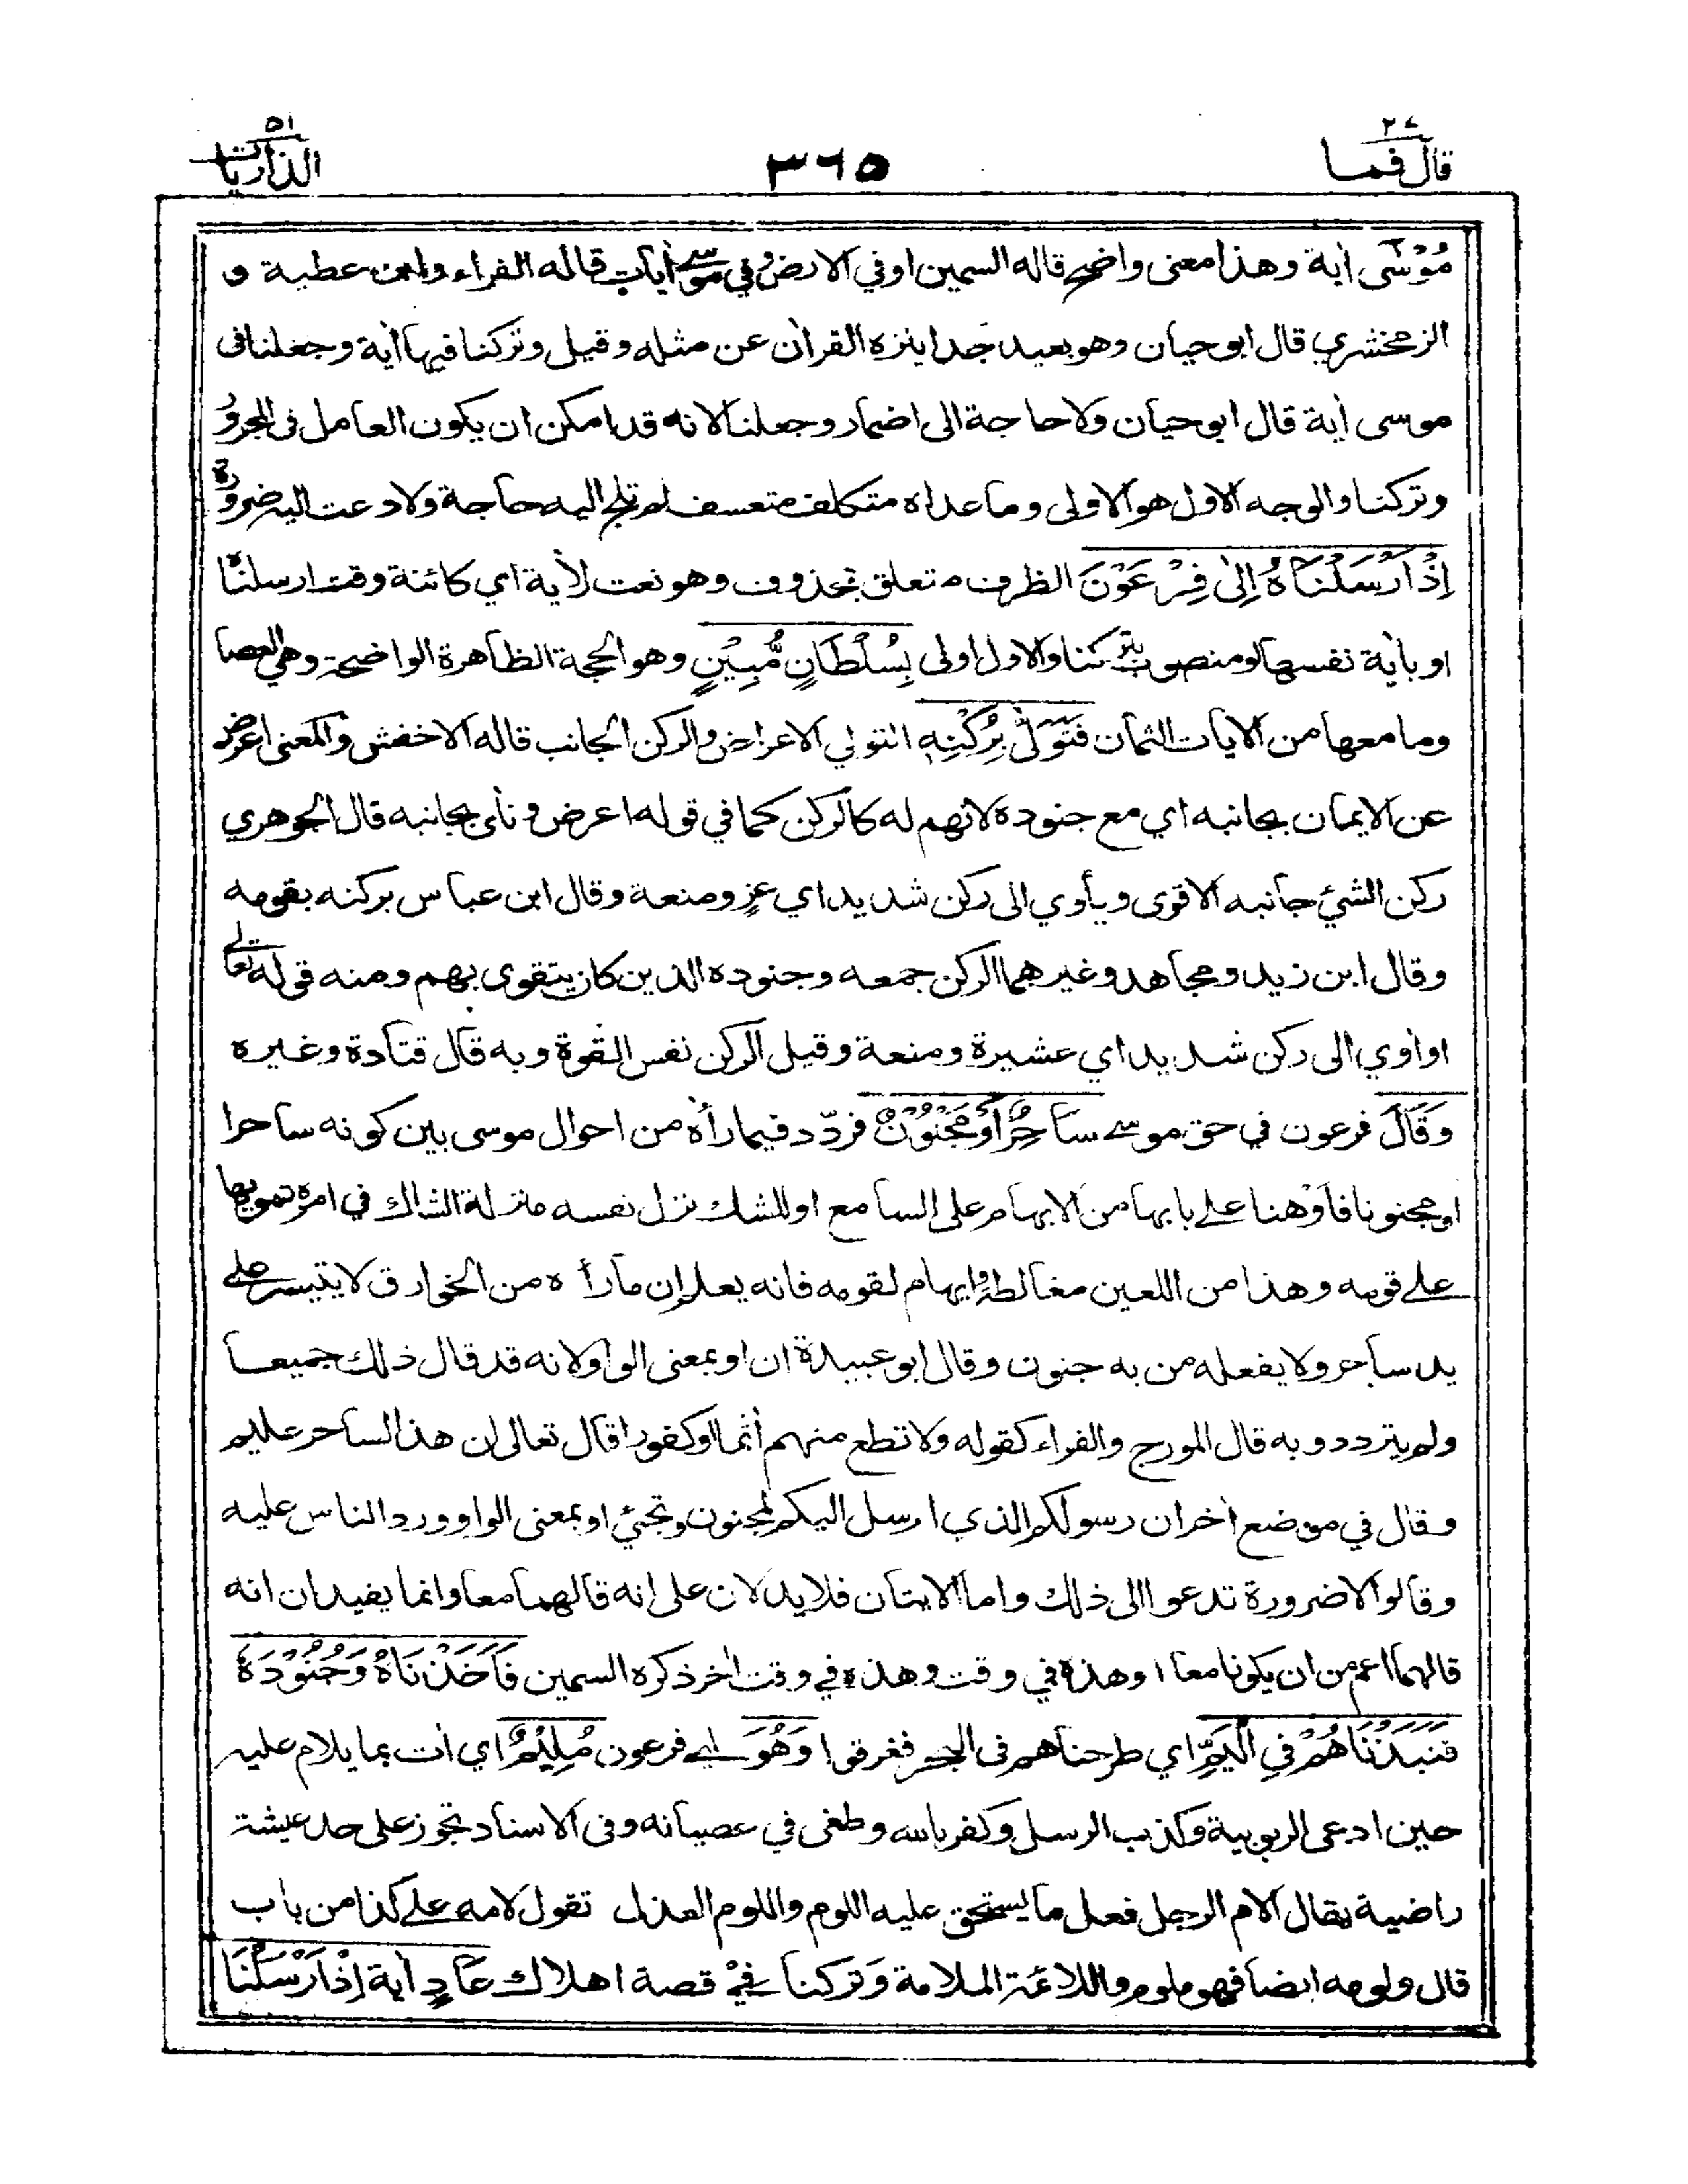 قال فما ٢٧
٣٦٥
الذاريات ٥١
مُوْسٰٓى اٰية وهذا معنى واضح قاله السمين اوفي الارض وفي موسى اٰيات قاله الفراء وابن عطية و
الزمخشري قال ابوحيان وهو بعيد جدا ينزه القراٰن عن مثله وقيل وتركنا فيها اٰية وجعلنا فى
موسى اٰية قال ابوحيان ولا حاجة الى اضمار وجعلنا لانه قد امكن ان يكون العامل فى المجرور
وتركنا والوجه الاول هو الاولى وما عداه متكلف متعسف لم تلج اليه حاجة ولا دعت اليه ضرورة
اِذْ اَرْسَلْنَاهُ اِلىٰ فِرْعَوْنَ الظرف متعلق بمحذوف وهو نعت لاٰية اي كائنة وقت ارسلنا
او باٰية نفسها او منصوب بتركنا والاول اولى بِسُلْطَانٍ مُّبِيْنٍ وهو الحجة الظاهرة الواضحة وهي العصا
وما معها من الاٰيات الثمان فَتَوَلّٰى بِرُكْنِهٖ التولي الاعراض والركن الجانب قاله الاخفش والمعنى اعرض
عن الايمان بجانبه اي مع جنوده لانهم له كالركن كما في قوله اعرض ونأى بجانبه قال الجوهري
ركن الشيئ جانبه الاقوى ويأوي الى ركن شديد اي عز ومنعة وقال ابن عباس بركنه بقومه
وقال ابن زيد ومجاهد وغيرهما الركن جمعه وجنوده الذين كان يتقوى بهم ومنه قوله تعالى
او اٰوي الى ركن شديد اي عشيرة ومنعة وقيل الركن نفس القوة وبه قال قتادة وغيره
وَقَالَ فرعون في حق موسى سَاحِرٌ اَوْ مَجْنُوْنٌ فردّد فيما راٰه من احوال موسى بين كونه ساحرا
او مجنونا فاَوْ هنا على بابها من الابهام على السامع او للشك نزل نفسه منزلة الشاك في امره تمويها
على قومه وهذا من اللعين مغالطة وايهام لقومه فانه يعلم ان ما راٰه من الخوارق لا يتيسر على
يد ساحر ولا يفعله من به جنون وقال ابو عبيدة ان او بمعنى الواو لانه قد قال ذلك جميعا
ولم يتردد وبه قال المورج والفراء كقوله ولا تطع منهم اٰثما او كفورا قال تعالى ان هذا لساحر عليم
وقال في موضع اٰخر ان رسولكم الذي ارسل اليكم لمجنون وتجئ او بمعنى الواو ورد الناس عليه
وقالوا لا ضرورة تدعوا الى ذلك واما الاٰيتان فلا يدلان على انه قالهما معا وانما يفيدان انه
قالهما اعم من ان يكونا معا او هذه في وقت وهذه في وقت اٰخر ذكره السمين فَاَخَذْنَاهُ وَجُنُوْدَهٗ
فَنَبَذْنَاهُمْ فِي الْيَمِّ اي طرحناهم فى البحر فغرقوا وَهُوَ اي فرعون مُلِيْمٌ اي اٰت بما يلام عليه
حين ادعى الربوبية وكذب الرسل وكفر بالله وطغى في عصيانه وفى الاسناد تجوز على حد عيشة
راضية يقال الام الرجل فعل ما يستحق عليه اللوم واللوم العذل تقول لامه على كذا من باب
قال ولومه ايضا فهو ملوم واللائمة الملامة وَتركنا فِيْ قصة اهلاك عَادٍ اٰية اِذْ اَرْسَلْنَا